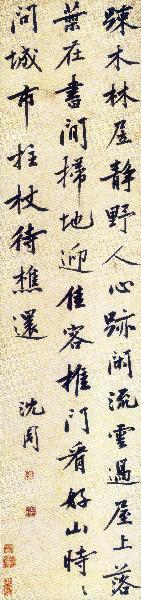 疎木林屋静野人心跡閒流雲過屋上落
葉在書間掃地迎佳客推門看好山時〻
問城市拄杖待樵還
沈周